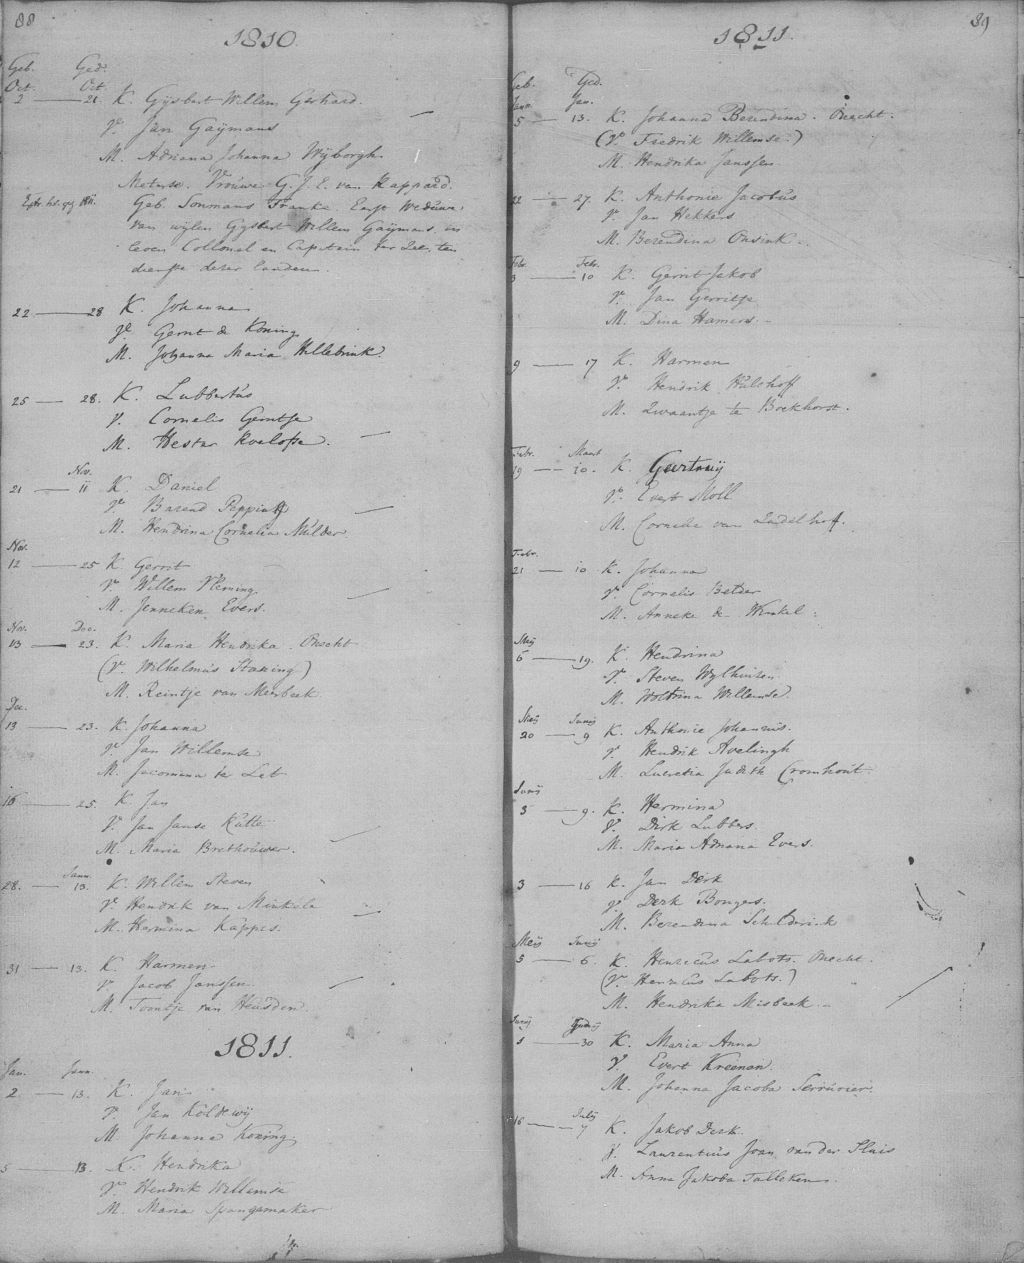 88
1810.
Geb. Ged.
Oct. Oct.
2 — 21 K. Gijsbert Willem Gerhard.
Vr Jan Gaijmans
M. Adriana Johanna Wijborgh
Meterse. Vrouwe G. J. E. van Rappard.
Geb. Franke. Eerst Weduwe
van wijlen Gijsbert Willem Gaijmans, in
leven Collonel en Capitain ter Zee, ten
dienste dezer landen.
22 — 28 K. Johanna
Vr Gerrit de Koning
M. Johanna Maria Hillebrink.
25 — 28. K. Lubbertus
V. Cornelis Gerritse
M. Hester Roelofse.
Nov.
21 — 11 K. Daniel
Vr Barend Peppink
M. Hendrina Cornelia Mulder
Nov.
12 — 25 K. Gerrit
Vr Willem Vleming
M. Jenneken Evers.
Nov. Dec.
13 — 23. K. Maria Hendrika. Onecht
(Vr Wilhelmus Staring)
M. Reintje van Merbeek
Dec.
13 — 23. K. Johanna
Vr Jan Willemse
M. Jacomina te Let
16 — 25. K. Jan
Vr Jan Janse Kutte
M. Maria Brethouwer.
Janu.
28. — 13. K. Willem Steven
Vr Hendrik van Minkele
M. Harmina Kappes.
31 — 13. K. Harmen
Vr Jacob Janssen
M. Toontje van Heusden.
1811.
Jan. Janu.
2 — 13. K. Jan
Vr Jan Koldewij
M. Johanna Koning
5 — 13. K. Hendrika
Vr Hendrik Willemse
M. Maria Spangemaker
89
1811.
Geb. Ged.
Janu. Jan.
5 — 13. K. Johanna Berendina. Onecht.
(Vr Fredrik Willemse.)
M. Hendrika Janssen
22 — 27. K. Anthonie Jacobus
Vr Jan Hekkers
M. Berendina Onsink.
Febr. Febr.
3 — 10 K. Gerrit Jakob
Vr Jan Gerritse
M. Dina Hamers.
9 — 17 K. Harmen
Vr Hendrik Hulshoff
M. Zwaantje te Bockhorst.
Febr. Maart
19 — 10. K. Geertruij
Vr Evert Moll
M. Cornelia van Zudelhoff.
Febr.
21 — 10 K. Johanna
Vr Cornelis Betder
M. Anneke de Winkel.
Meij
6 — 19. K. Hendrina
Vr Steven Wijlhuizen
M. Woltrina Willemse.
Meij Junij
20 — 9 K. Anthonie Johannis.
Vr Hendrik Avelingh
M. Lucretia Judith Cromhout.
Junij
3 — 9. K. Hermina
Vr Dirk Lubbers.
M. Maria Adriana Evers.
3 — 16 K. Jan Derk
Vr Derk Bongers.
M. Berendina Schilderink
Meij Junij
5 — 6. K. Henricus Labots. Onecht.
(Vr Henricus Labots.)
M. Hendrika Misbeek.
Junij Junij
1 — 30 K. Maria Anna
Vr Evert Kreenen.
M. Johanna Jacoba Serrurier.
Julij
16 — 7 K. Jakob Derk.
Vr Laurentius Joan van der Sluis
M. Anna Jakoba Talleken.